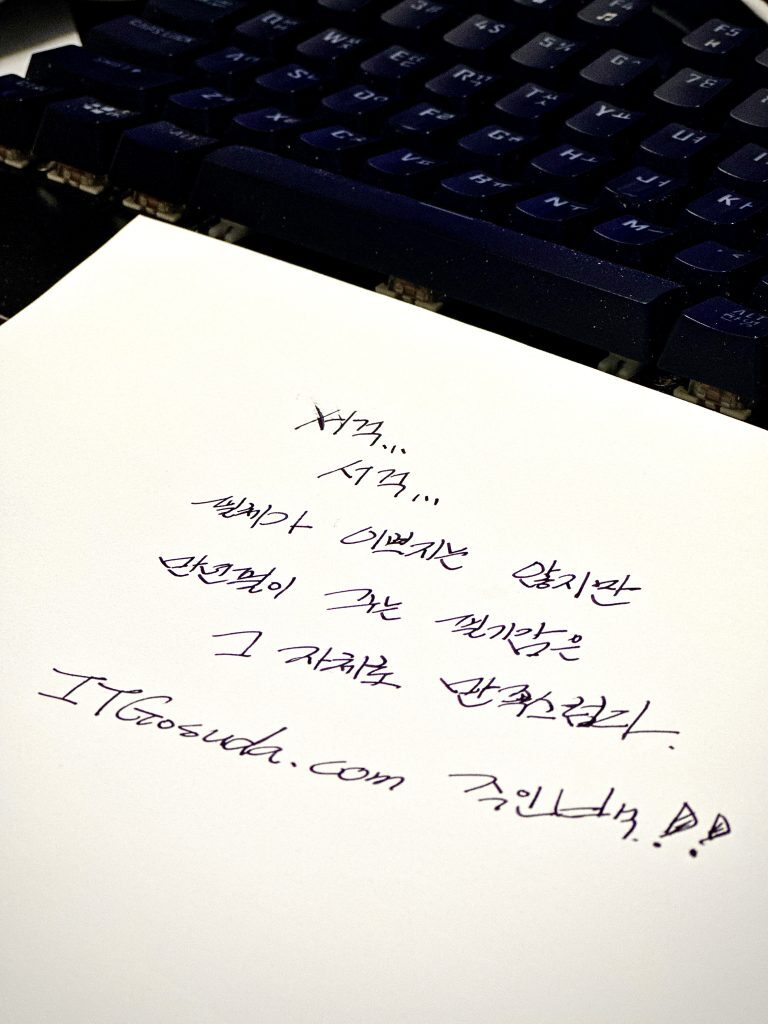 W E R T Y U
A S D F G H J K
Z X C V B N M
ALT
서걱...
서걱...
필체가 이쁘지는 않지만
만년필이 주는 필기감은
그 자체로 만족스럽다.
ITGosuda.com 주인백!!